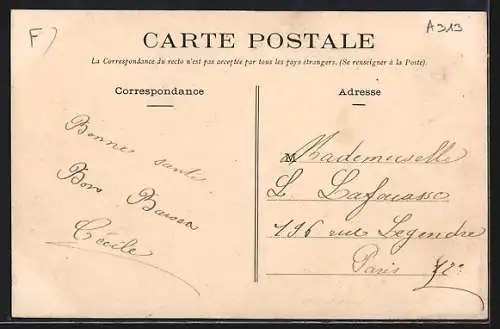 F)
A313
CARTE POSTALE
La Correspondance du recto n'est pas acceptée par tous les pays étrangers. (Se renseigner à la Poste).
Correspondance
Bonne santé
Bons Baisers
Cécile
Adresse
Mademoiselle
L. Lafouasse
196 rue Legendre
Paris 17e